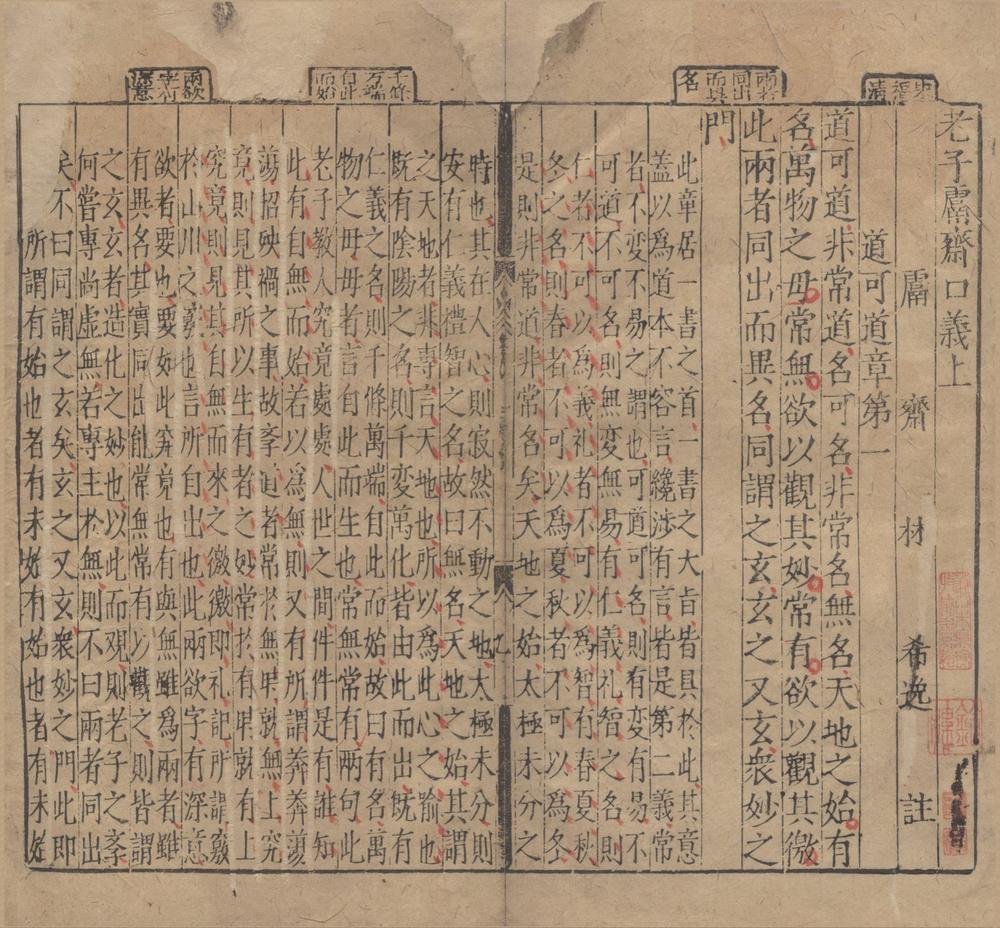 老子鬳齋口義上
鬳齋林希逸註
道可道章第一
道可道非常道名可名非常名無名天地之始有
名萬物之母常無欲以觀其妙常有欲以觀其徼
此兩者同出而異名同謂之玄玄之又玄衆妙之
門
此章居一書之首一書之大旨皆具於此其意
蓋以爲道本不容言纔涉有言皆是第二義常
者不變不易之謂也可道可名則有變有易不
可道不可名則無変無易有仁義礼智之名則
仁者不可以爲義礼者不可以爲智有春夏秋
冬之名則春者不可以爲夏秋者不可以爲冬
是則非常道非常名矣天地之始太極未分之
時也其在人心則寂然不動之地太極未分則
安有仁義禮智之名故曰無名天地之始其謂
之天地者非專言天地也所以爲此心之喻也
旣有陰陽之名則千変萬化皆由此而出旣有
仁義之名則千條萬端自此而始故曰有名萬
物之母母者言自此而生也常無常有兩句此
老子教人究竟處處人世之間件件是有誰知
此有自無而始若以爲無則又有所謂莽莽蕩
蕩招殃禍之事故斈道者常於無時就無上究
竟則見其所以生有者之妙常於有時就有上
究竟則見其自無而來之徼徼即礼記所謂竅
於山川之竅也言所自出也此兩欲字有深意
欲者要也要如此究竟也有與無雖爲兩者雖
有異名其實同出能常無常有以觀之則皆謂
之玄玄者造化之妙也以此而观則老子之斈
何嘗專尚虛無若專主於無則不曰兩者同出
矣不曰同謂之玄矣玄之又玄衆妙之門此即
所謂有始也者有未始有始也者有未始
兩者
同出
而異
名
千條
万端
自此
而始
兩欲
字有
深意